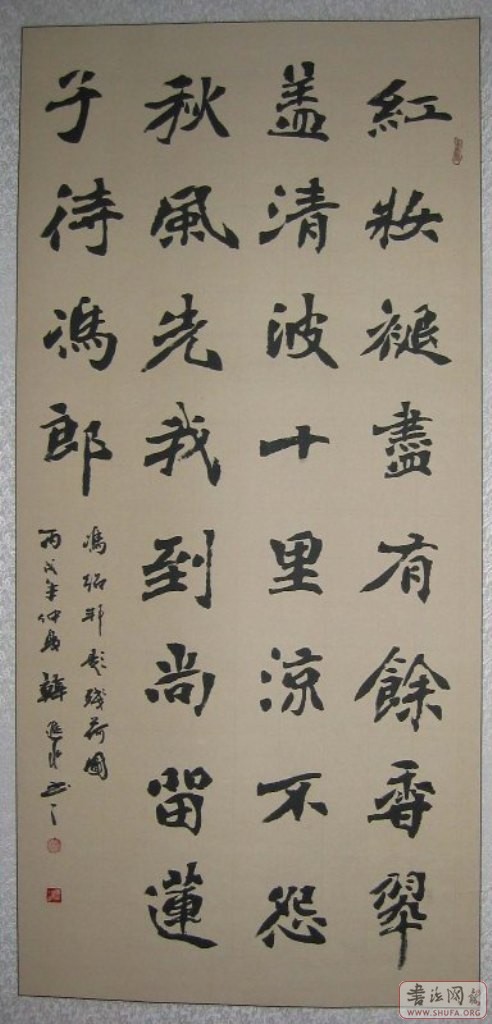 紅妝褪盡有餘香翠
蓋清波十里涼不怨
秋風先我到尚留蓮
子待馮郎
馮 題殘荷圖
丙戌年仲 韓 書
書法网
WWW.SHUFA.ORG